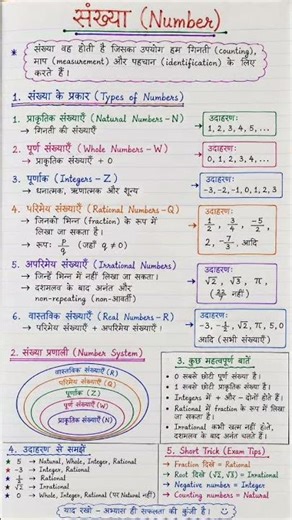 संख्या (Number)
★ संख्या वह होती है जिसका उपयोग हम गिनती (counting),
माप (measurement) और पहचान (identification) के लिए
करते हैं।
1. संख्या के प्रकार (Types of Numbers)
1. प्राकृतिक संख्याएँ (Natural Numbers – N)
→ गिनती की संख्याएँ
उदाहरण:
1, 2, 3, 4, 5, ...
2. पूर्ण संख्याएँ (Whole Numbers – W)
→ प्राकृतिक संख्याएँ + 0
उदाहरण:
0, 1, 2, 3, 4, ...
3. पूर्णांक (Integers – Z)
→ धनात्मक, ऋणात्मक और शून्य
उदाहरण:
-3, -2, -1, 0, 1, 2, 3
4. परिमेय संख्याएँ (Rational Numbers – Q)
→ जिनको भिन्न (fraction) के रूप में
लिखा जा सकता है।
→ रूप: p/q (जहाँ q ≠ 0)
उदाहरण:
1/2, 3/4, -5/2,
2, -7/3, आदि
5. अपरिमेय संख्याएँ (Irrational Numbers)
→ जिन्हें भिन्न में नहीं लिखा जा सकता।
→ दशमलव के बाद अनंत और
non-repeating (non-आवर्ती)
उदाहरण:
√2, √3, π,
नहीं)
6. वास्तविक संख्याएँ (Real Numbers – R)
→ परिमेय संख्याएँ + अपरिमेय संख्याएँ।
उदाहरण:
-3, -1/2, √2, π, 5, 0
आदि (सभी संख्याएँ)
2. संख्या प्रणाली (Number System)
वास्तविक संख्याएँ (R)
परिमेय संख्याएँ (Q)
पूर्णांक (Z)
पूर्ण संख्याएँ (W)
प्राकृतिक संख्याएँ (N)
3. कुछ महत्वपूर्ण बातें
• 0 सबसे छोटी पूर्ण संख्या है।
• 1 सबसे छोटी प्राकृतिक संख्या है।
• Integers में + और – दोनों होते हैं।
• Rational में fraction के रूप में लिखा
जा सकता है।
• Irrational कभी खत्म नहीं होते,
दशमलव के बाद अनंत चलते हैं।
4. उदाहरण से समझें
★ 5 → Natural, Whole, Integer, Rational
★ -3 → Integer, Rational
★ 1/2 → Rational
★ √2 → Irrational
★ 0 → Whole, Integer, Rational (पर Natural नहीं)
5. Short Trick (Exam Tips)
→ Fraction दिखे = Rational
→ Root दिखे (√2, √3) = Irrational
→ Negative numbers = Integer
→ Counting numbers = Natural
याद रखो – अभ्यास ही सफलता की कुंजी है।